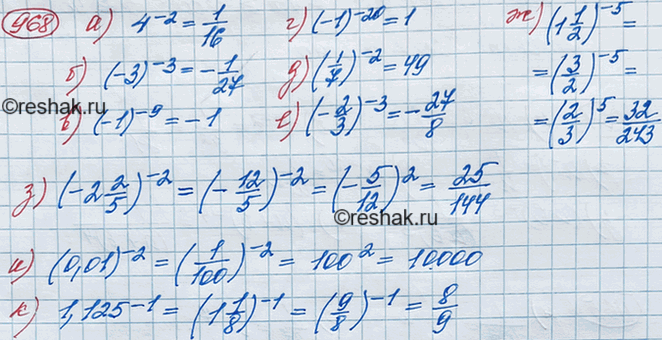 968 а) 4^{-2} = \frac{1}{16} г) (-1)^{-20} = 1 ж) (1\frac{1}{2})^{-5} =
б) (-3)^{-3} = -\frac{1}{27} д) (\frac{1}{7})^{-2} = 49 = (\frac{3}{2})^{-5} =
©reshak.ru
в) (-1)^{-9} = -1 е) (-\frac{2}{3})^{-3} = -\frac{27}{8} = (\frac{2}{3})^{5} = \frac{32}{243}
©reshak.ru
з) (-2\frac{2}{5})^{-2} = (-\frac{12}{5})^{-2} = (-\frac{5}{12})^{2} = \frac{25}{144}
©reshak.ru
и) (0,01)^{-2} = (\frac{1}{100})^{-2} = 100^{2} = 10000
к) 1,125^{-1} = (1\frac{1}{8})^{-1} = (\frac{9}{8})^{-1} = \frac{8}{9}
©reshak.ru